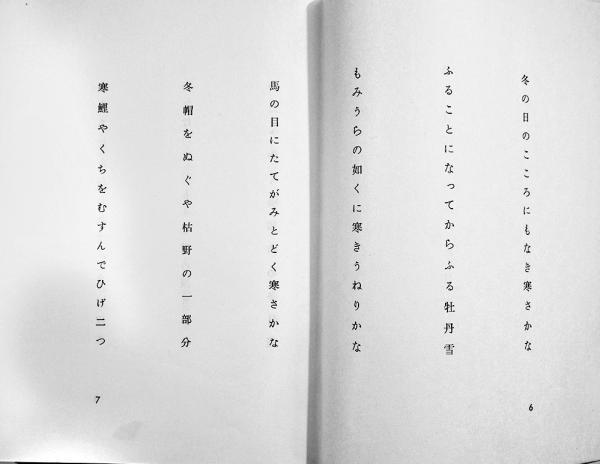 冬の日のこころにもなき寒さかな
ふることになってからふる牡丹雪
もみうらの如くに寒きうねりかな
6
馬の目にたてがみとどく寒さかな
冬帽をぬぐや枯野の一部分
寒鯉やくちをむすんでひげ二つ
7